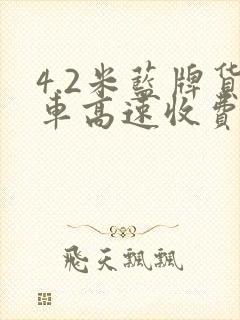 4.2米蓝牌货
车高速收费
飞天飘飘